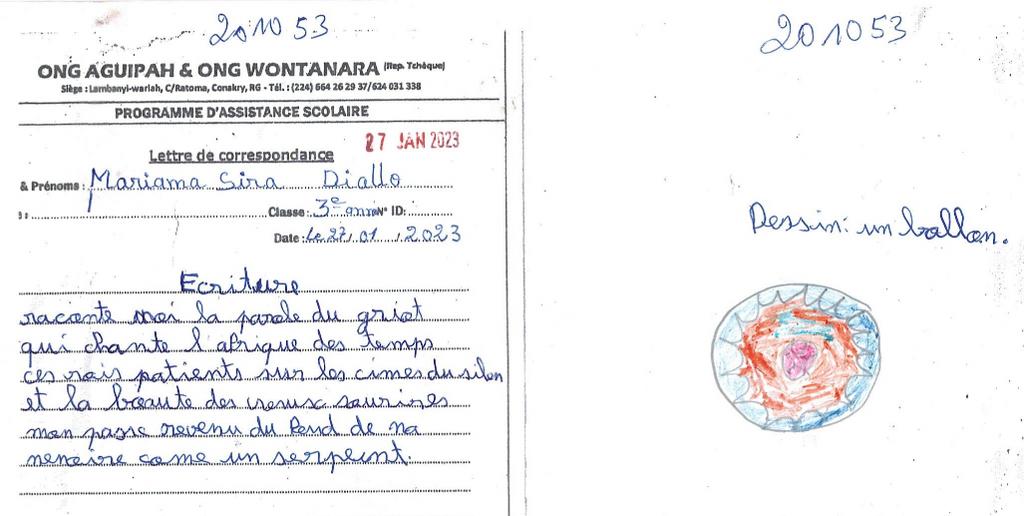 201053
ONG AGUIPAH & ONG WONTANARA (Rep. Tchèque)
Siège : Lambanyi-wariah, C/Ratoma, Conakry, RG - Tél. : (224) 664 26 29 37/624 031 338
PROGRAMME D'ASSISTANCE SCOLAIRE
27 JAN 2023
Lettre de correspondance
& Prénoms : Mariama Sira Diallo
Classe : 3e année N° ID:
Date : Le 27/01/2023
Ecriture
raconte moi la parole du griot
qui chante l'afrique des temps
ces rois patients sur les cimes du silen
et la beaute des
mon passe revenu du fond de na
nenoire come un serpeint.
201053
Dessin: un ballon.